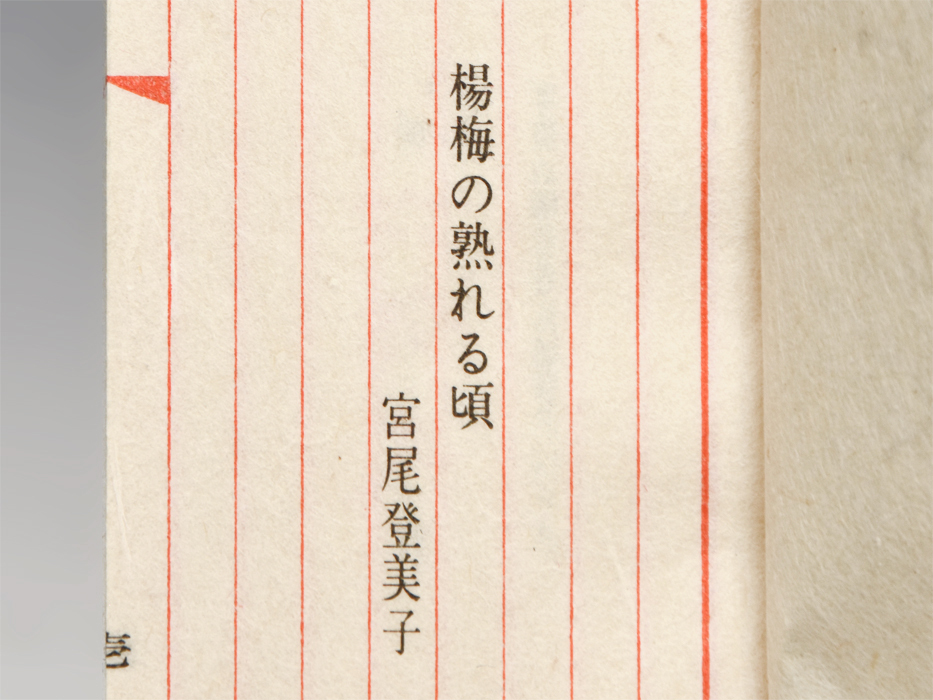 楊梅の熟れる頃
宮尾登美子
壱